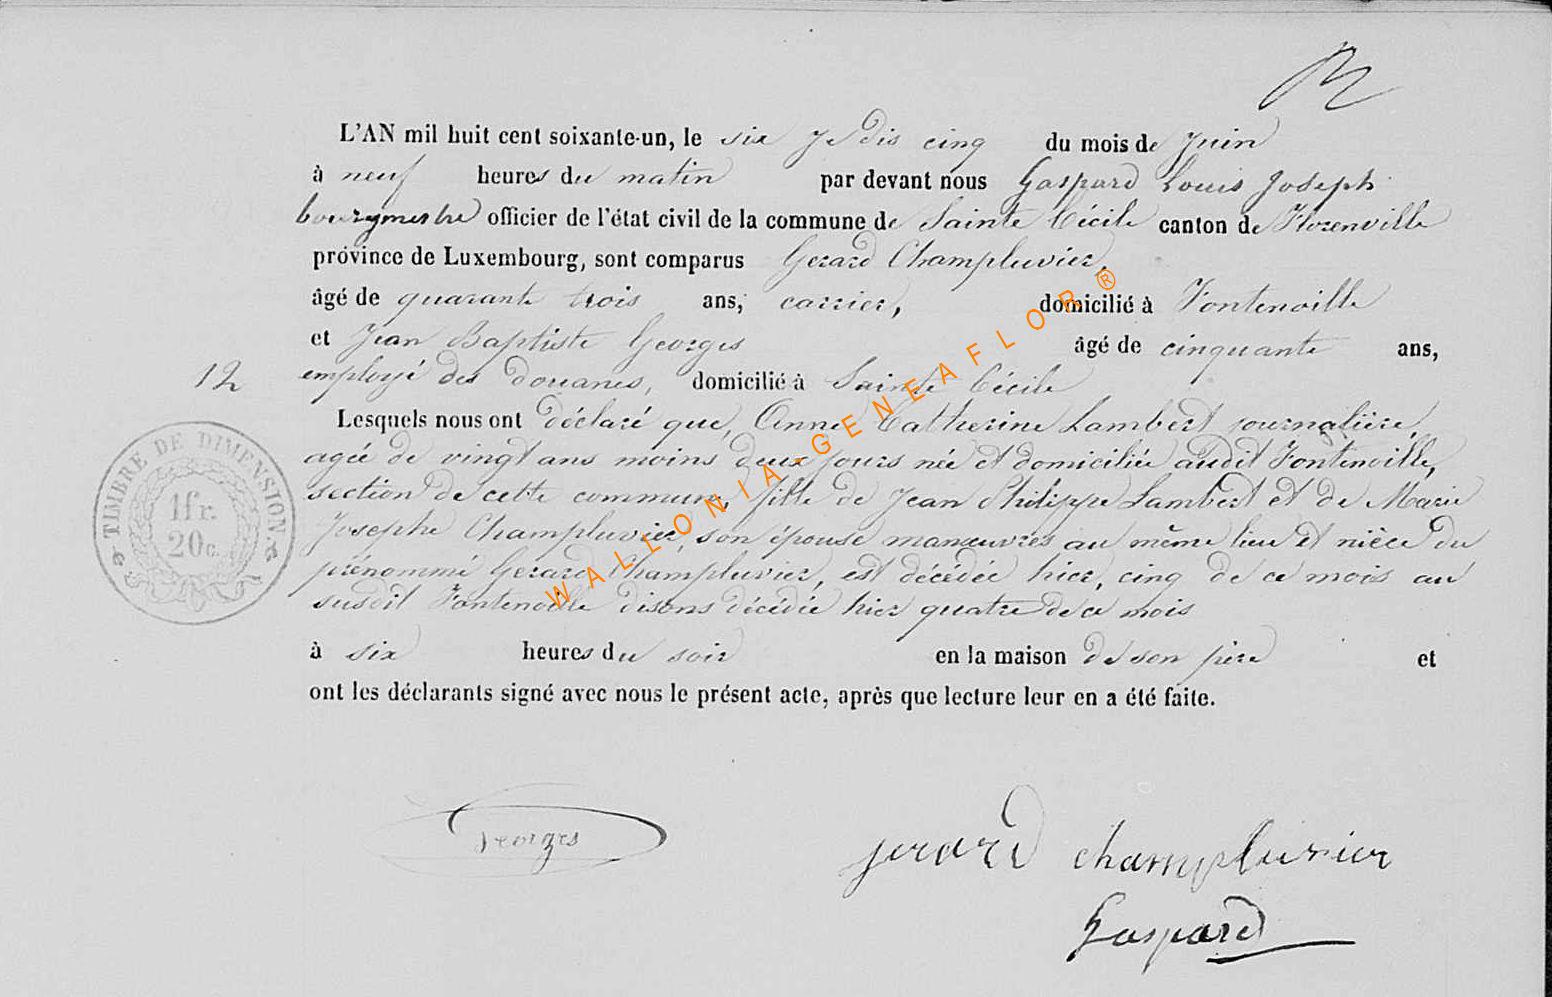 L'AN mil huit cent soixante-un, le six Je dis cinq du mois de Juin
à neuf heures du matin par devant nous Gaspard Louis Joseph
bourgmestre officier de l'état civil de la commune de Sainte Cécile canton de Florenville
province de Luxembourg, sont comparus Gerard Champluvier,
âgé de quarante trois ans, carrier, domicilié à Fontenoille
et Jean Baptiste Georges âgé de cinquante ans,
12 employé des douanes, domicilié à Sainte Cécile
Lesquels nous ont déclaré que, Anne Catherine Lambert journalière,
agée de vingt ans moins deux jours née et domiciliée audit Fontenoille,
section de cette commune, fille de Jean Philippe Lambert et de Marie
Josephe Champluvier, son épouse manœuvres au même lieu et nièce du
prénommé Gerard Champluvier, est décédée hier, cinq de ce mois au
susdit Fontenoille disons décédée hier quatre de ce mois
à six heures du soir en la maison de son père et
ont les déclarants signé avec nous le présent acte, après que lecture leur en a été faite.
TIMBRE DE DIMENSION.
1fr.
20c.
WALLONIA-GENEAFLOR®
Georges
gerard champluvier
Gaspard